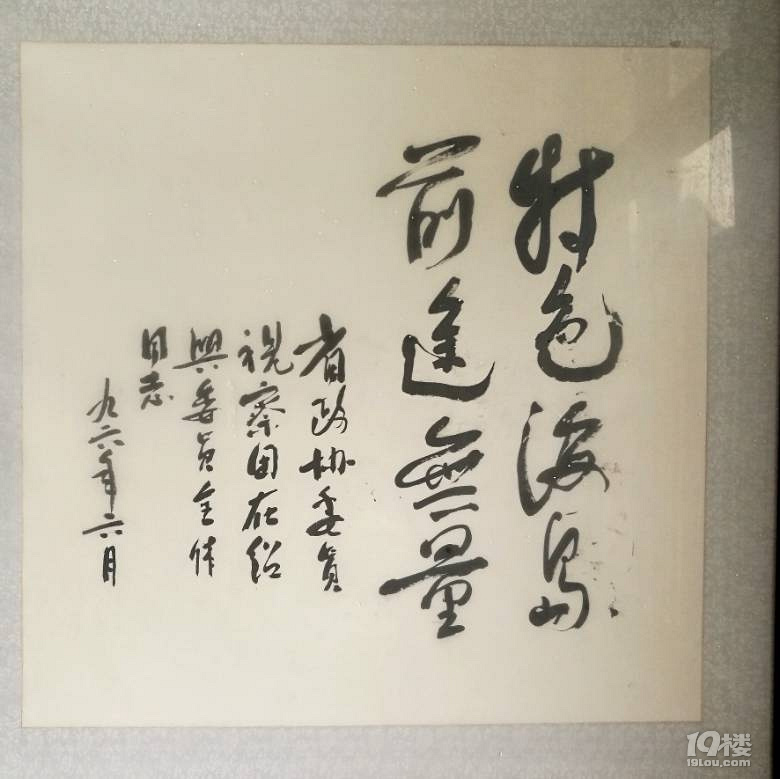 特色海岛
前途無量
省政协委員
視察团在绍
興委员全体
同志
九六年六月
19楼
19lou.com